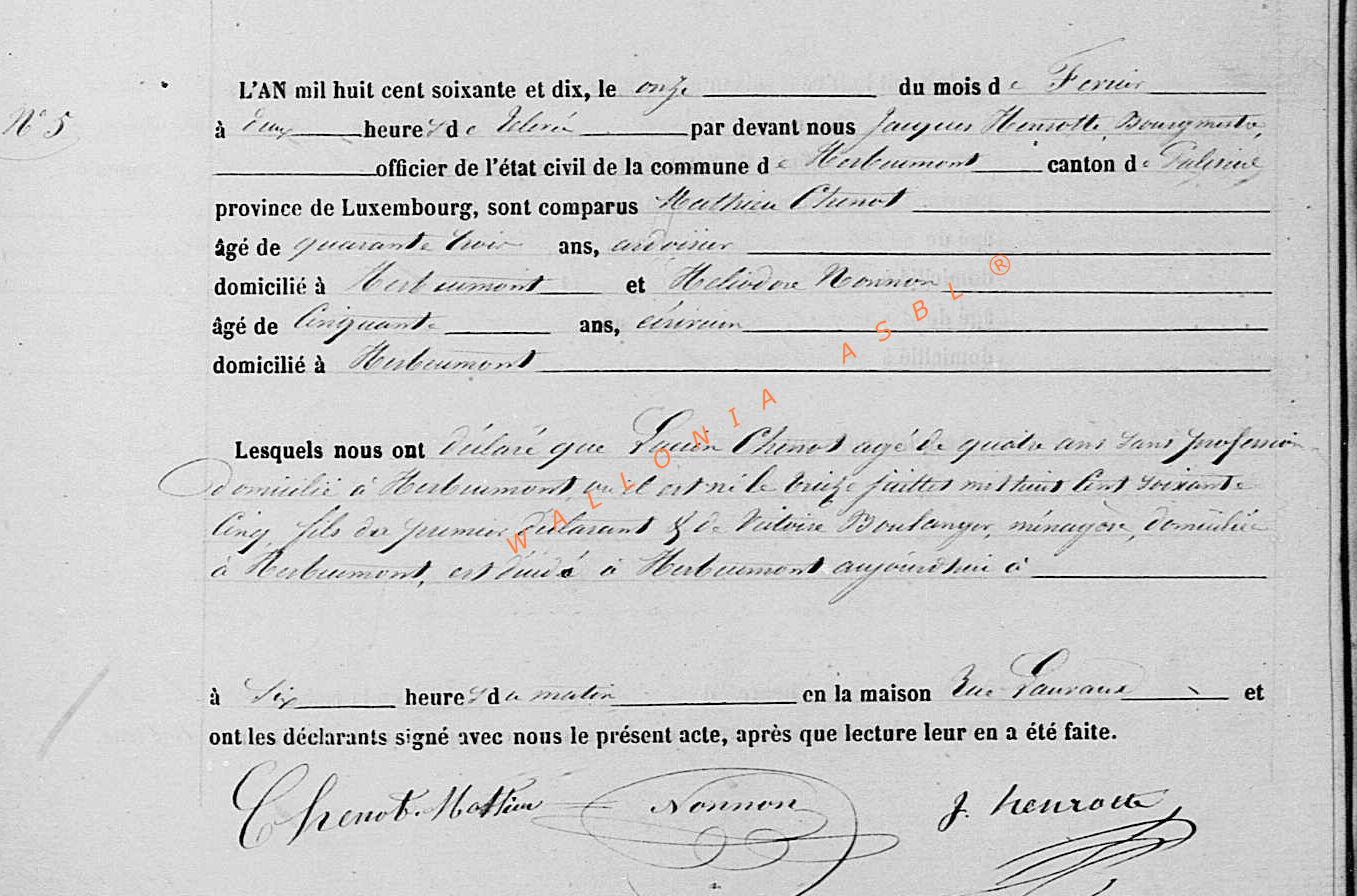 N° 5
L'AN mil huit cent soixante et dix, le onze du mois de Fevrier
à deux heures de relevée par devant nous Jacques Henrotte, Bourgmestre,
officier de l'état civil de la commune de Herbeumont canton de
province de Luxembourg, sont comparus Mathieu Chenot
âgé de quarante trois ans,
domicilié à Herbeumont et Heliodore Nonnon
âgé de Cinquante ans,
domicilié à Herbeumont
WALLONIA ASBL ®
Lesquels nous ont déclaré que Lucien Chenot agé de quatre ans sans profession
domicilié à Herbeumont où il est né le treize juillet mil huit cent soixante
cinq, fils du premier déclarant & de Victoire Boulanger, ménagère, domiciliée
à Herbeumont, est décédé à Herbeumont aujourd'hui à
à Six heures du matin en la maison Rue et
ont les déclarants signé avec nous le présent acte, après que lecture leur en a été faite.
Chenot Mathieu Nonnon J. henrotte